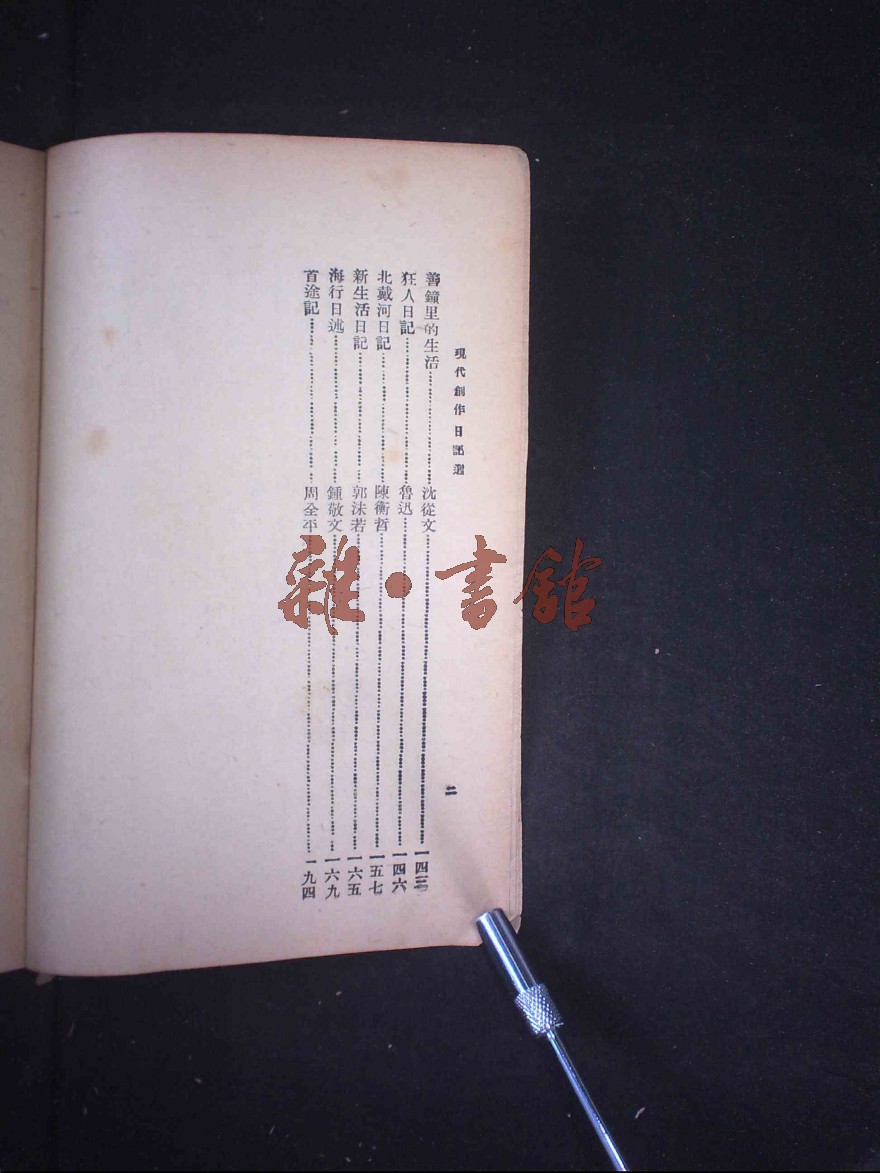 現代創作日記選
二
善鐘里的生活 沈從文 一四三
狂人日記 魯迅 一四六
北戴河日記 陳衡哲 一五七
新生活日記 郭沫若 一六五
海行日述 鍾敬文 一六九
首途記 周全平 一九四
雜·書館